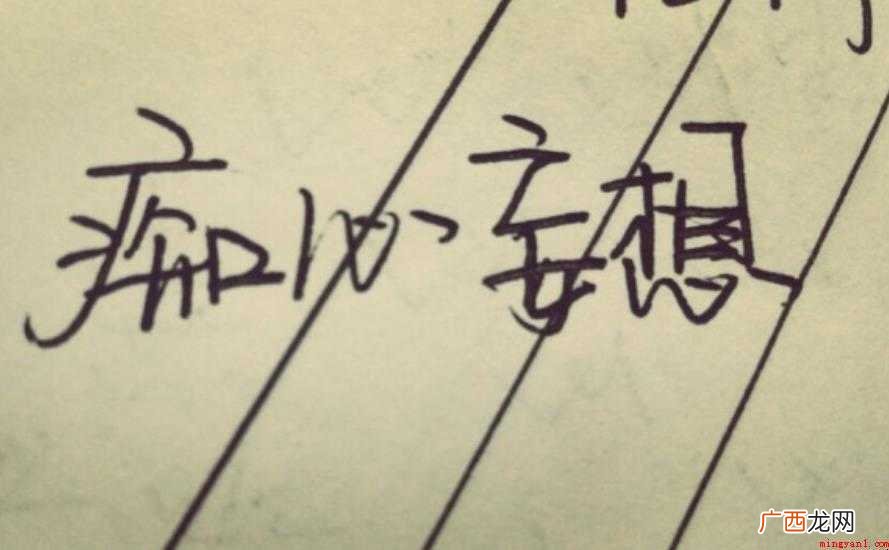 痴心妄想
广西龙网
mingyan1.com